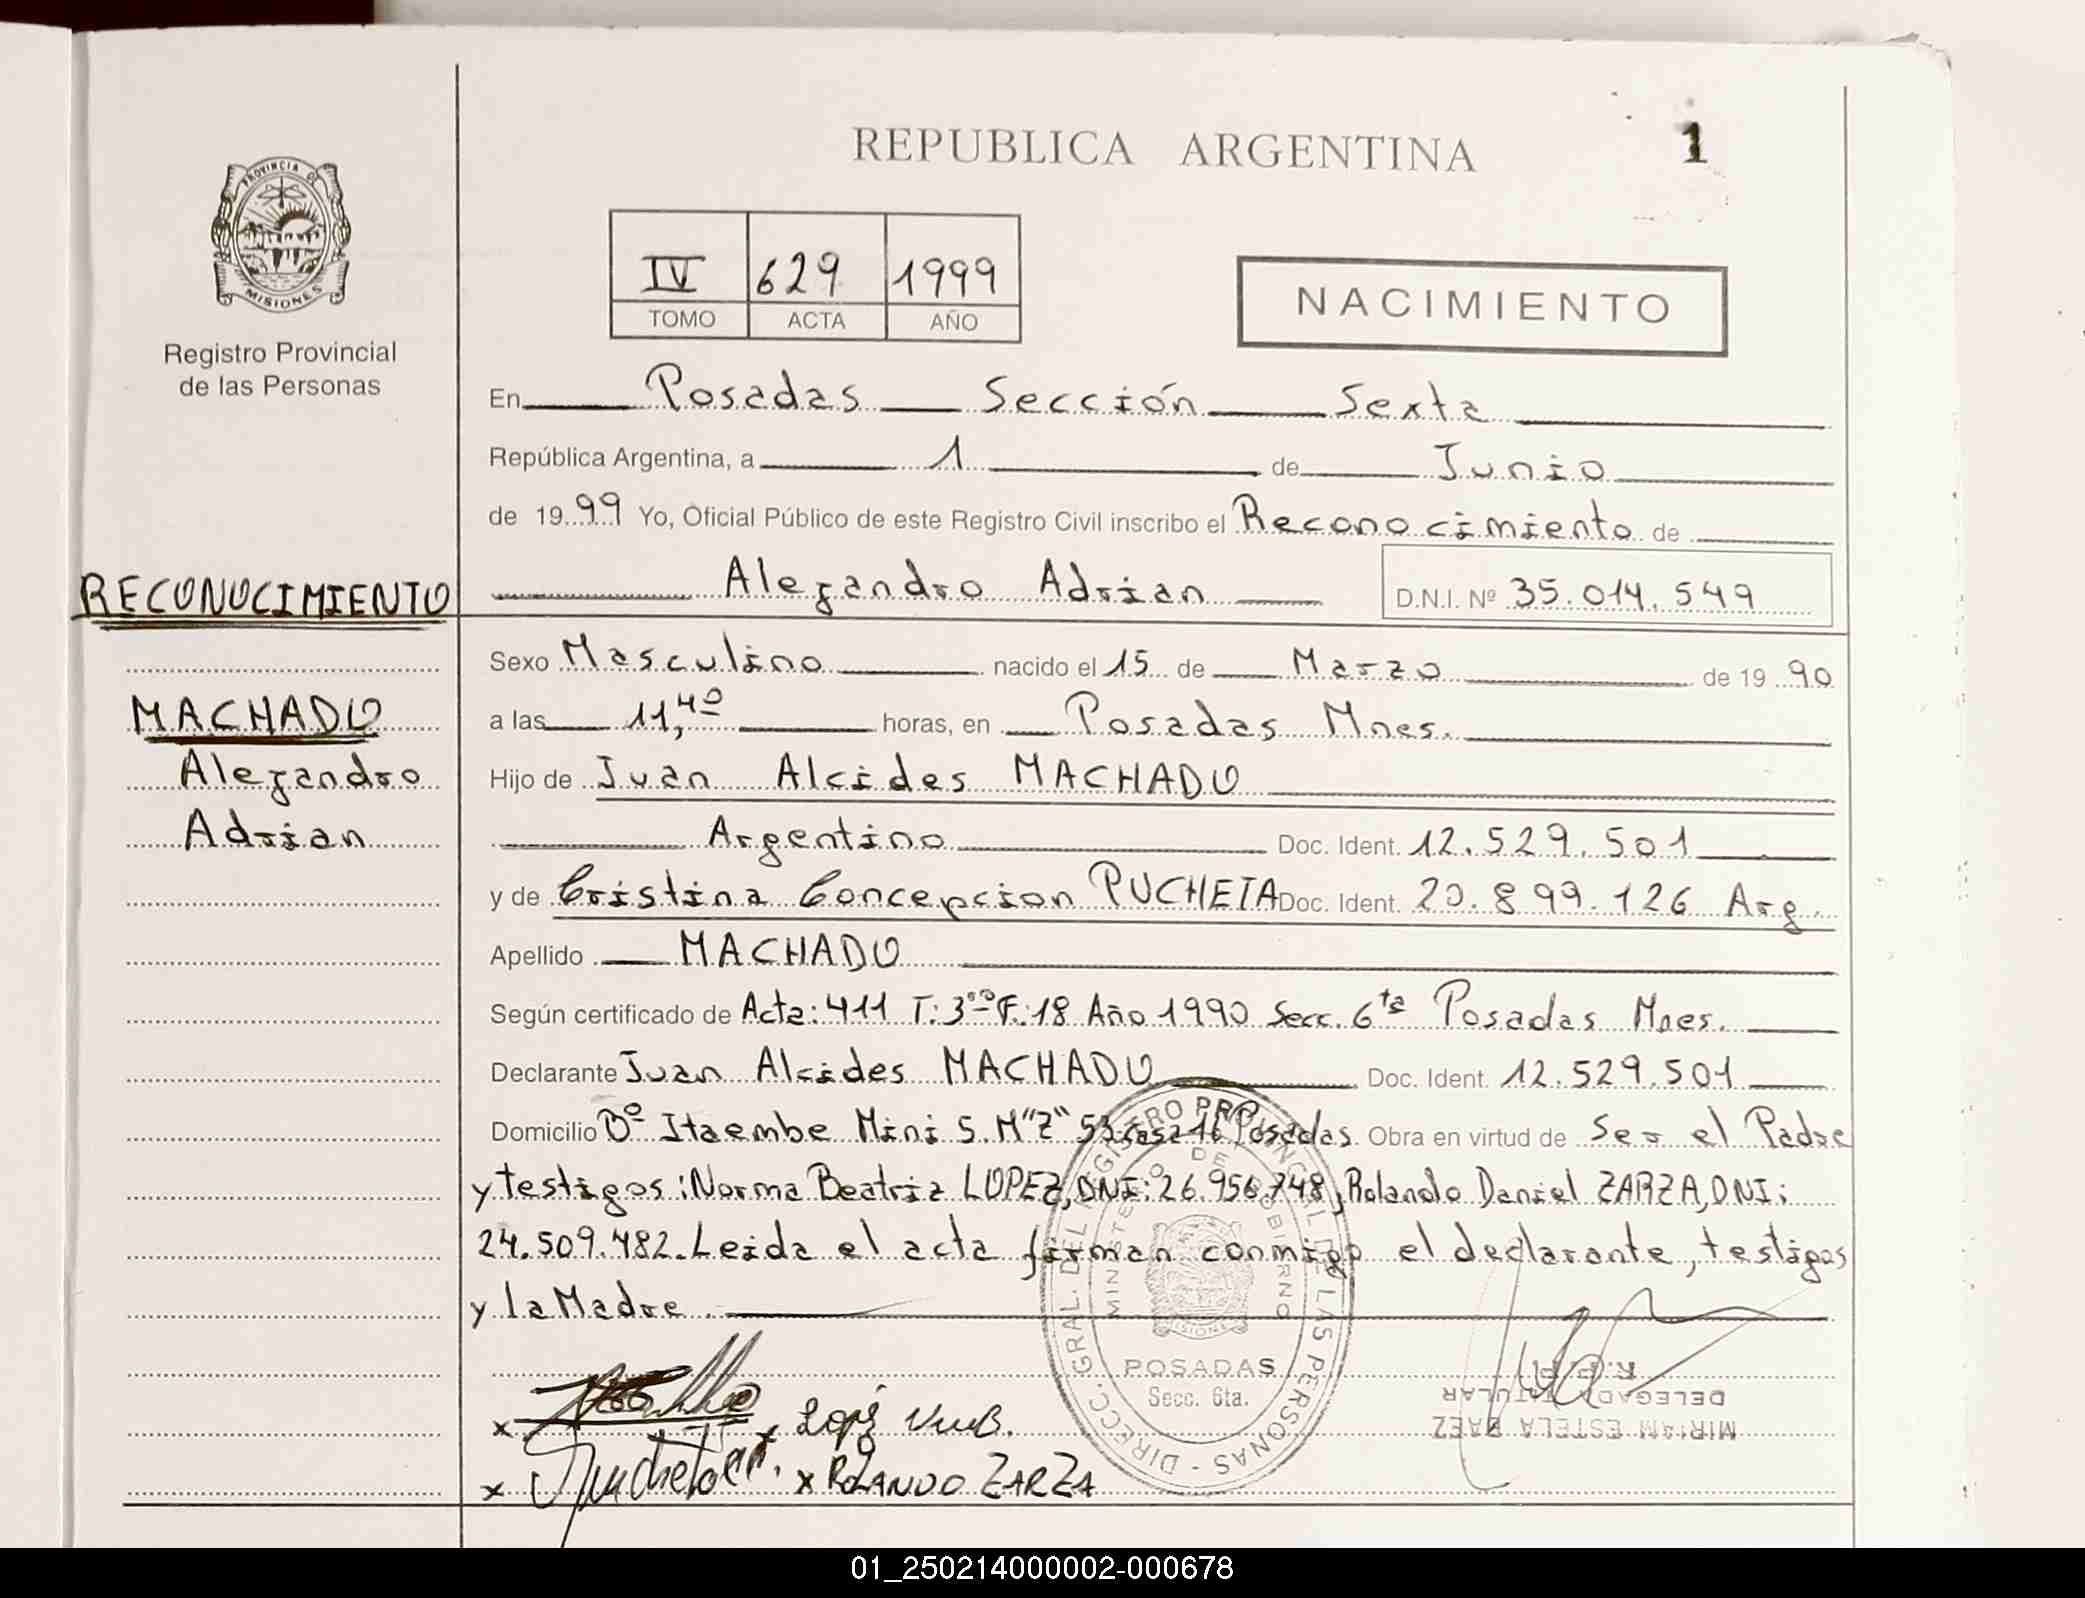 REPUBLICA ARGENTINA
1
PROVINCIA DE
MISIONES
Registro Provincial
de las Personas
IV 629 1999
TOMO ACTA AÑO
NACIMIENTO
En Posadas Sección Sexta
República Argentina, a 1 de Junio
de 1999 Yo, Oficial Público de este Registro Civil inscribo el Reconocimiento de
RECONOCIMIENTO
Alejandro Adrian D.N.I. Nº 35.014.549
Sexo Masculino nacido el 15 de Marzo de 1990
MACHADO
a las 11,40 horas, en Posadas Mnes.
Alejandro
Hijo de Juan Alcides MACHADO
Adrian
Argentino Doc. Ident. 12.529.501
y de Cristina Concepcion PUCHETA Doc. Ident. 20.899.126 Arg.
Apellido MACHADO
Según certificado de Acta: 411 T: 3ro F: 18 Año 1990 Secc. 6ta Posadas Mnes.
Declarante Juan Alcides MACHADO Doc. Ident. 12.529.501
Domicilio Bº Itaembe Mini S. M"Z" 53 casa 16 Posadas. Obra en virtud de Ser el Padre
y testigos: Norma Beatriz LOPEZ, DNI: 26.956.748, Rolando Daniel ZARZA, DNI:
24.509.482. Leida el acta firman conmigo el declarante, testigos
y la Madre.
DIRECC. GRAL. DEL REGISTRO PROVINCIAL DE LAS PERSONAS
MINISTERIO DE GOBIERNO
MISIONES
POSADAS
Secc. 6ta.
MIRIAM ESTELA BAEZ
DELEGADA TITULAR
R.P.P.
x x
x x ROLANDO ZARZA
01_250214000002-000678